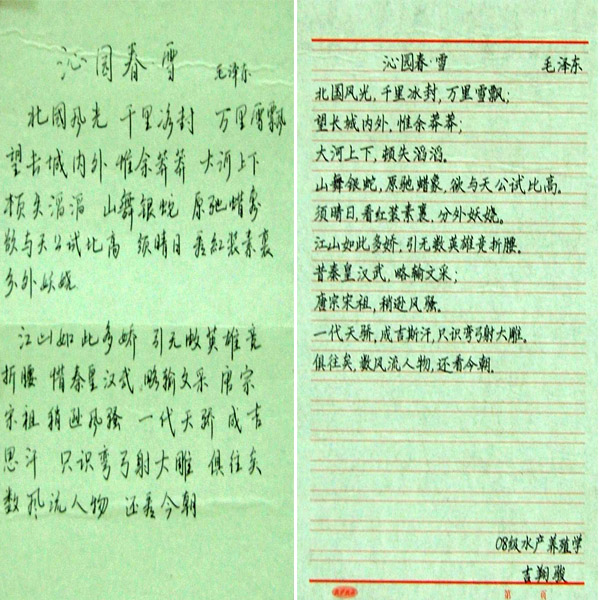 沁园春 雪
毛泽东
北国风光 千里冰封 万里雪飘
望长城内外 惟余莽莽 大河上下
顿失滔滔 山舞银蛇 原驰蜡象
欲与天公试比高 须晴日 看红装素裹
分外妖娆
江山如此多娇 引无数英雄竞
折腰 惜秦皇汉武 略输文采 唐宗
宋祖 稍逊风骚 一代天骄 成吉
思汗 只识弯弓射大雕 俱往矣
数风流人物 还看今朝
沁园春·雪 毛泽东
北国风光,千里冰封,万里雪飘;
望长城内外,惟余莽莽;
大河上下,顿失滔滔。
山舞银蛇,原驰蜡象,欲与天公试比高。
须晴日,看红装素裹,分外妖娆。
江山如此多娇,引无数英雄竞折腰。
昔秦皇汉武,略输文采;
唐宗宋祖,稍逊风骚。
一代天骄,成吉斯汗,只识弯弓射大雕。
俱往矣,数风流人物,还看今朝。
08级水产养殖学
吉翔骏
第 页